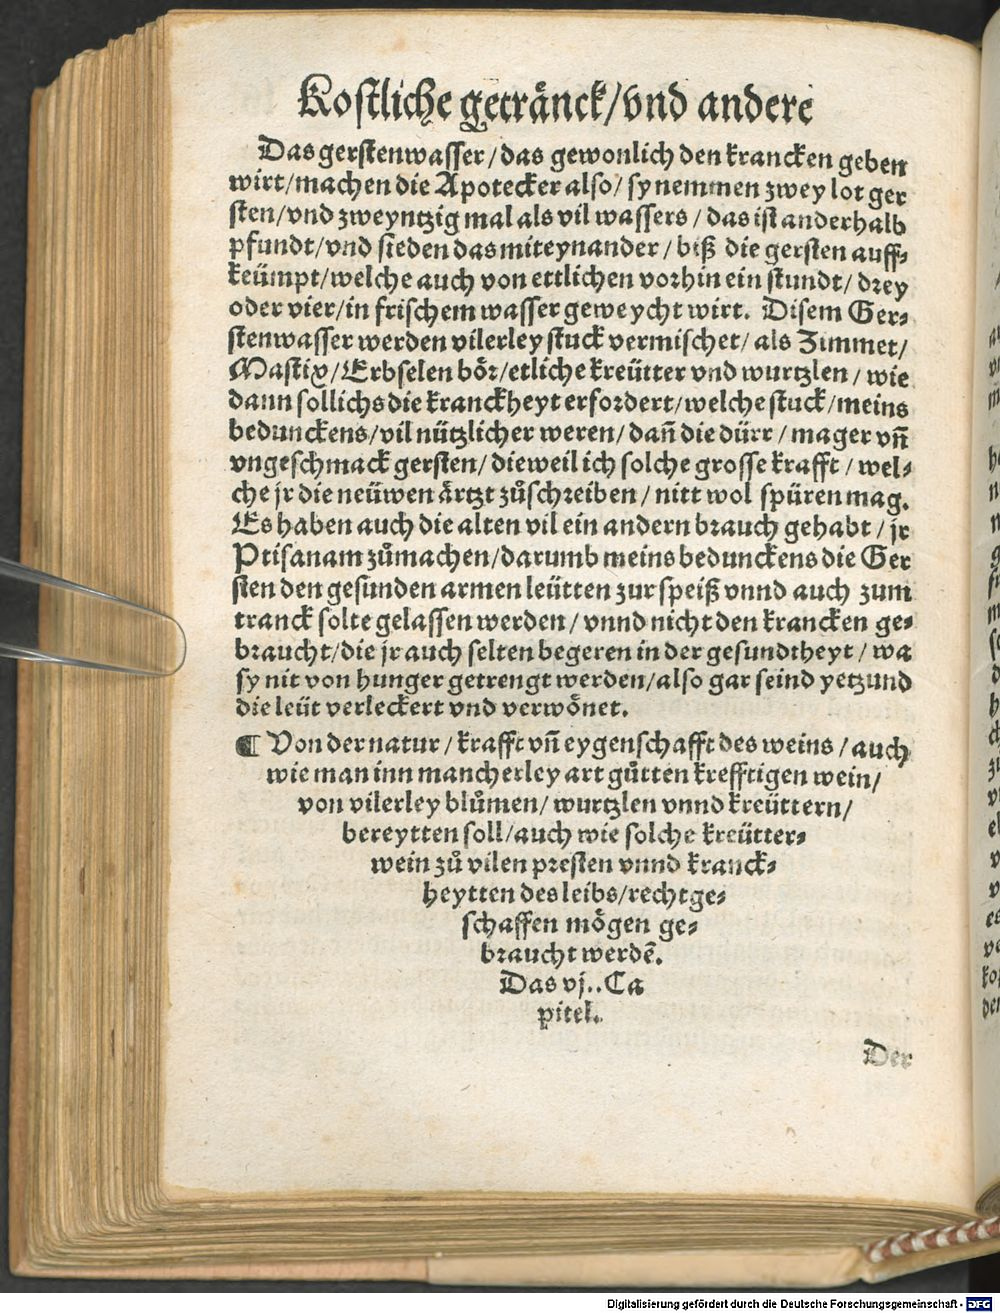 Kostliche getränck/vnd andere
Das gerstenwasser/das gewonlich den krancken geben
wirt/machen die Apotecker also/sy nemmen zwey lot ger
sten/vnd zweyntzig mal als vil wassers/das ist anderhalb
pfundt/vnd sieden das miteynander/biß die gersten auff⸗
keümpt/welche auch von ettlichen vorhin ein stundt/drey
oder vier/in frischem wasser geweycht wirt. Disem Ger⸗
stenwasser werden vilerley stuck vermischet/als Zimmet/
Mastix/Erbselen bör/etliche kreütter vnd wurtzlen/wie
dann sollichs die kranckheyt erfordert/welche stuck/meins
bedunckens/vil nützlicher weren/dañ die dürr/mager vñ
vngeschmack gersten/dieweil ich solche grosse krafft/wel⸗
che jr die neüwen ärtzt zůschreiben/nitt wol spüren mag.
Es haben auch die alten vil ein andern brauch gehabt/jr
Ptisanam zůmachen/darumb meins bedunckens die Ger
sten den gesunden armen leütten zur speiß vnnd auch zum
tranck solte gelassen werden/vnnd nicht den krancken ge⸗
braucht/die jr auch selten begeren in der gesundtheyt/wa
sy nit von hunger getrengt werden/also gar seind yetzund
die leüt verleckert vnd verwönet.
¶ Von der natur/krafft vñ eygenschafft des weins/auch
wie man inn mancherley art gůtten krefftigen wein/
von vilerley blůmen/wurtzlen vnnd kreüttern/
bereytten soll/auch wie solche kreütter⸗
wein zů vilen presten vnnd kranck⸗
heytten des leibs/rechtge⸗
schaffen mögen ge⸗
braucht werdẽ.
Das vj.. Ca
pitel.
Der
Digitalisierung gefördert durch die Deutsche Forschungsgemeinschaft - DFG